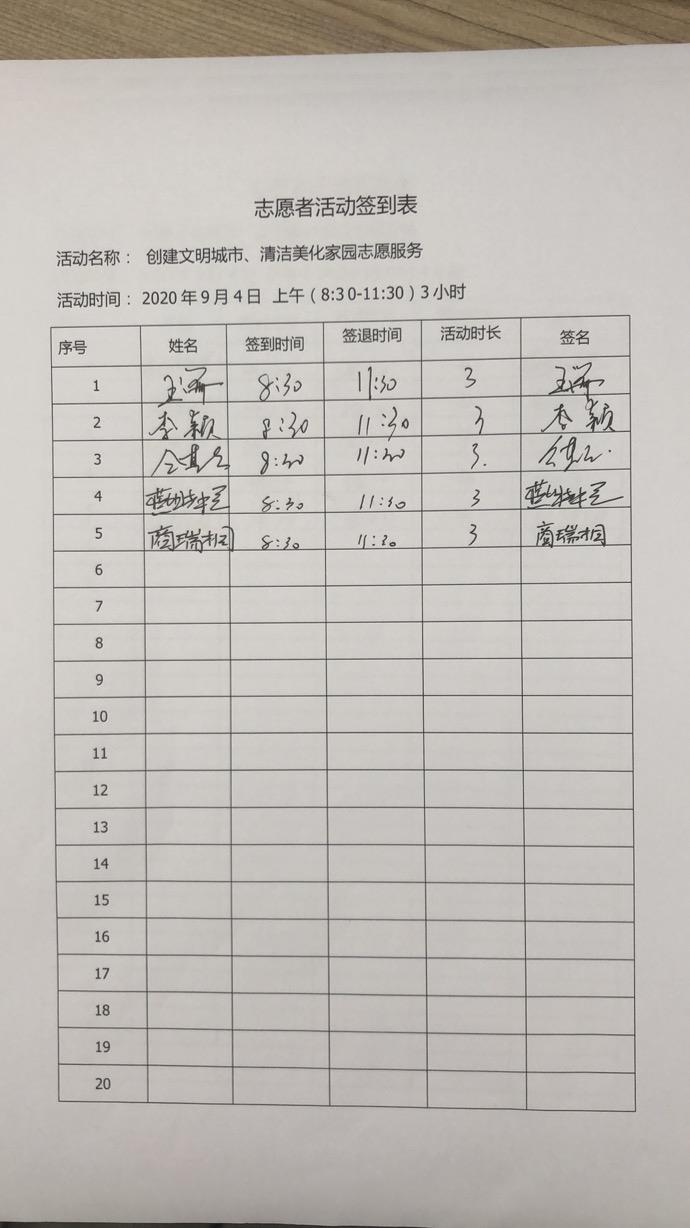 志愿者活动签到表
活动名称： 创建文明城市、清洁美化家园志愿服务
活动时间：2020年9月4日 上午（8:30-11:30）3小时
序号 姓名 签到时间 签退时间 活动时长 签名
1 8:30 11:30 3
2 李颖 8:30 11:30 3 李颖
3 8:30 11:30 3.
4 8:30 11:30 3
5 商瑞相 8:30 11:30 3 商瑞相
6
7
8
9
10
11
12
13
14
15
16
17
18
19
20